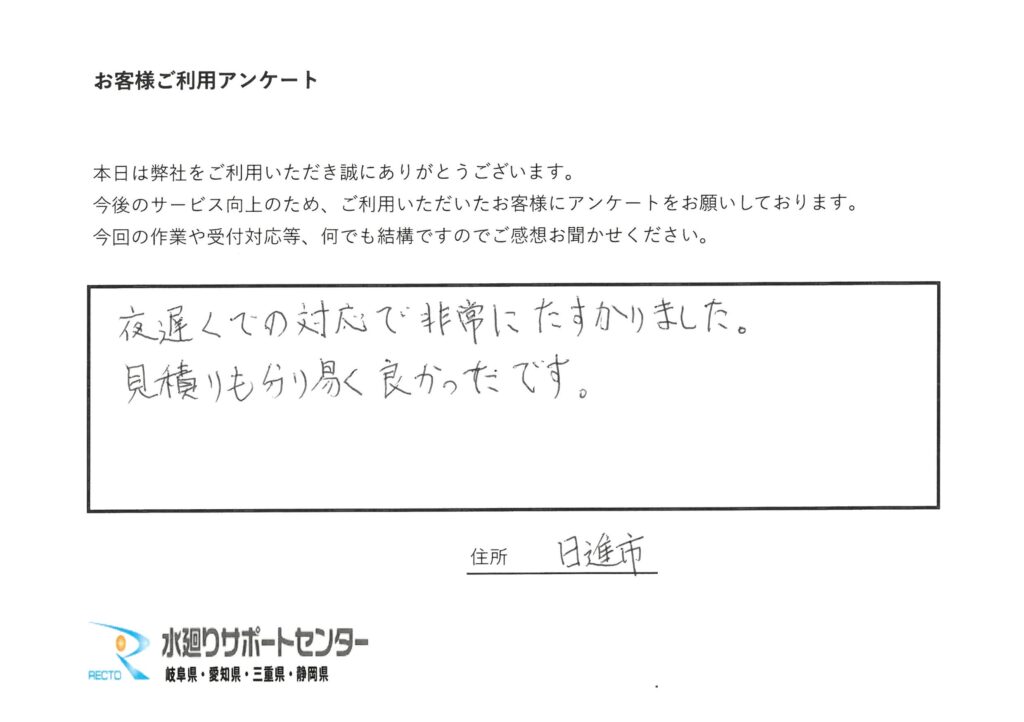 お客様ご利用アンケート
本日は弊社をご利用いただき誠にありがとうございます。
今後のサービス向上のため、ご利用いただいたお客様にアンケートをお願いしております。
今回の作業や受付対応等、何でも結構ですのでご感想お聞かせください。
夜遅くでの対応で非常にたすかりました。
見積りも分り易く良かっただです。
住所 日進市
RECTO
水廻りサポートセンター
岐阜県・愛知県・三重県・静岡県